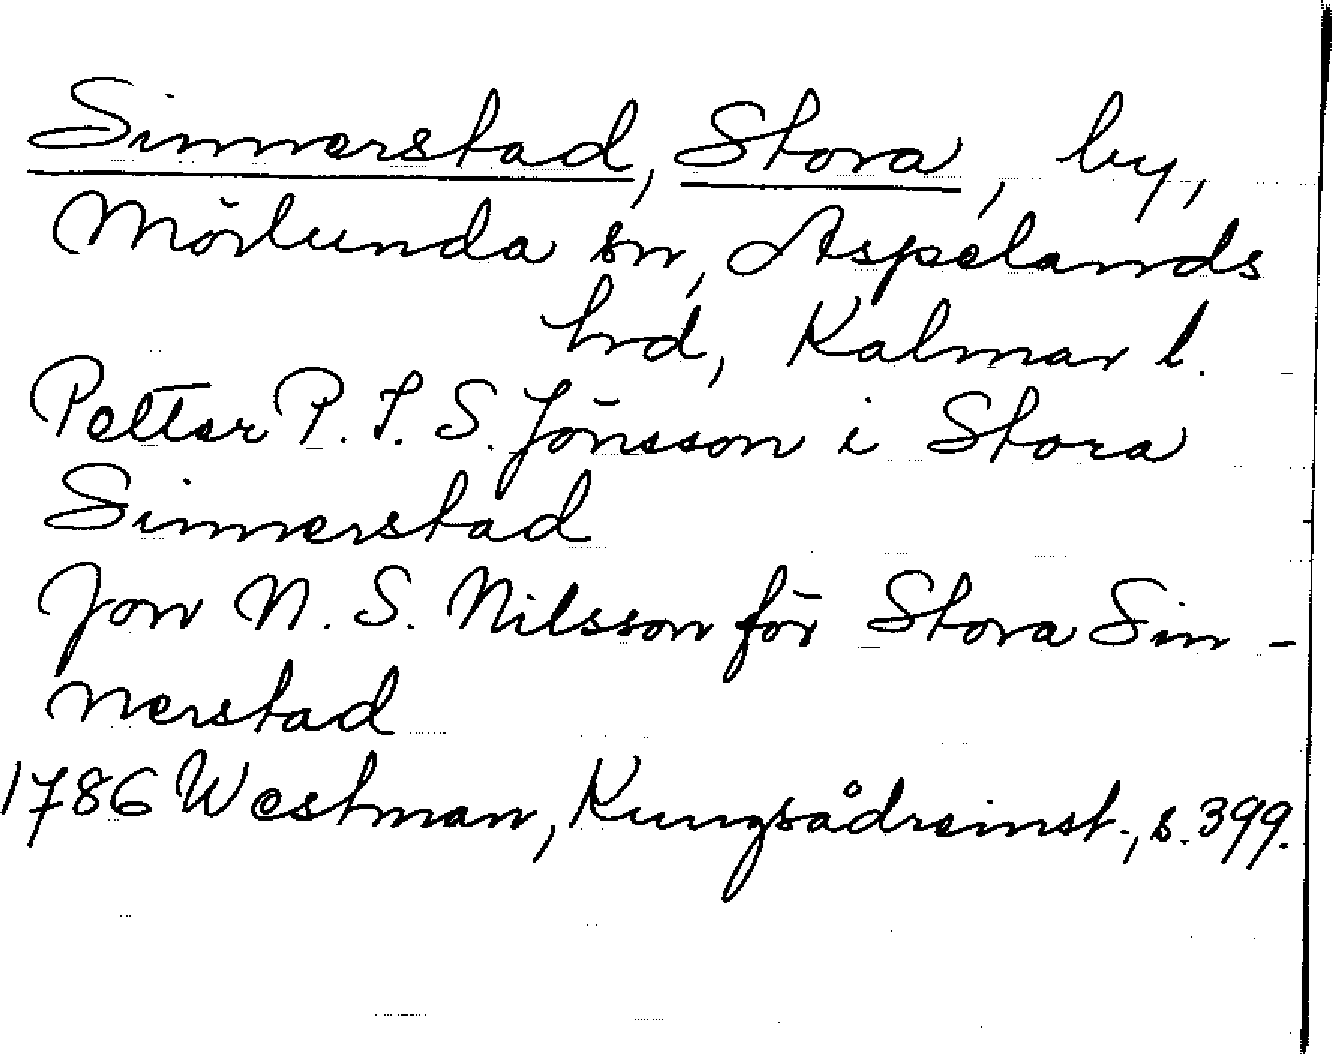 Sinnerstad, Stora, by,
Mörlunda sn, Aspelands
hrd, Kalmar l.
Petter P. I. S. Jönsson i Stora
Sinnerstad
Jon N. S. Nilsson för Stora Sin-
nerstad
1786 Westman, Kungsådreinst., s. 399.